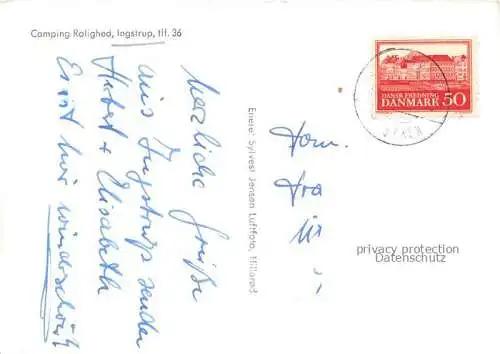 Camping Rolighed, Ingstrup, tlf. 36
herzliche Grüße
aus Ingstrup senden
Hubert + Elisabeth
Es ist hier wunderschön!
Eneret Sylvest Jensen Luftfoto, Hillerød
DANSK FREDNING
DANMARK 50
Fam.
privacy protection
Datenschutz